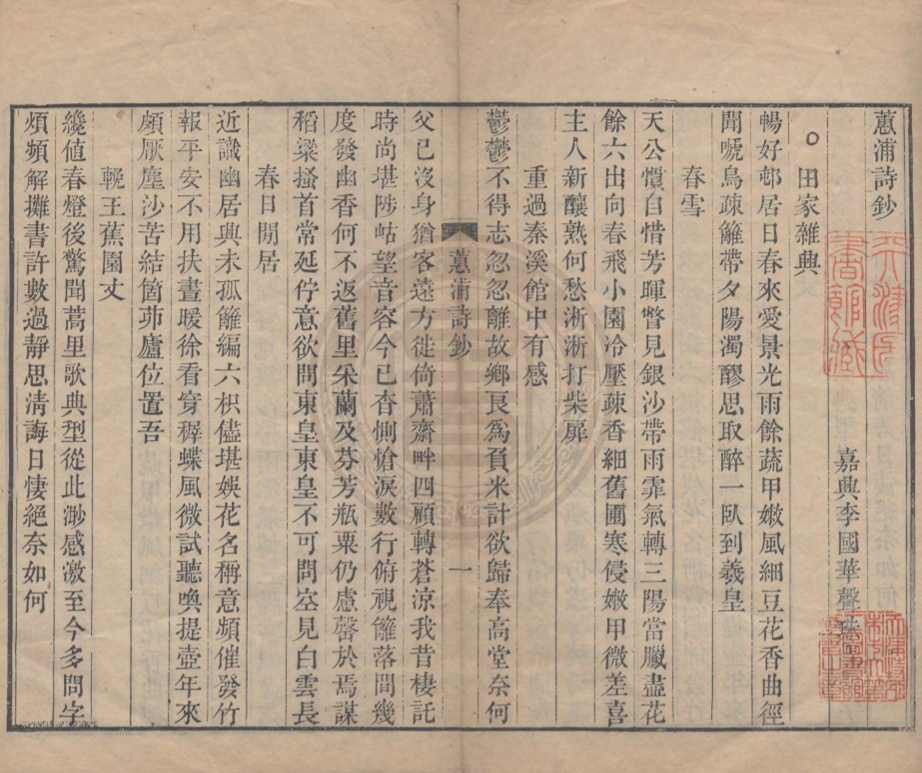 蕙浦詩鈔
嘉興李國華聲
田家雜興
暢好邨居日春來愛景光雨餘蔬甲嫩風細豆花香曲徑
聞嘑鳥疎籬帶夕陽濁醪思取醉一臥到羲皇
春雪
天公慣自惜芳暉瞥見銀沙帶雨霏氣轉三陽當臘盡花
餘六出向春飛小園冷壓疎香細舊圃寒侵嫩甲微差喜
主人新釀熟何愁淅淅打柴扉
重過秦溪館中有感
鬱鬱不得志忽忽離故鄉艮為負米計欲歸奉高堂奈何
蕙浦詩鈔 一
父已沒身猶客遠方徙倚蕭齋畔四顧轉蒼涼我昔棲託
時尚堪陟岵望音容今已杳惻愴淚數行俯視籬落間幾
度發幽香何不返舊里采蘭及芬芳瓶粟仍慮罄於焉謀
稻粱搔首常延佇意欲問東皇東皇不可問空見白雲長
春日閒居
近識幽居興未孤籬編六枳儘堪娛花名稱意頻催發竹
報平安不用扶晝暖徐看穿穉蝶風微試聽喚提壺年來
頗厭塵沙苦結箇茆廬位置吾
輓王蕉園丈
纔值春燈後驚聞蒿里歌典型從此渺感激至今多問字
煩頻解攤書許數過靜思清誨日悽絕奈如何